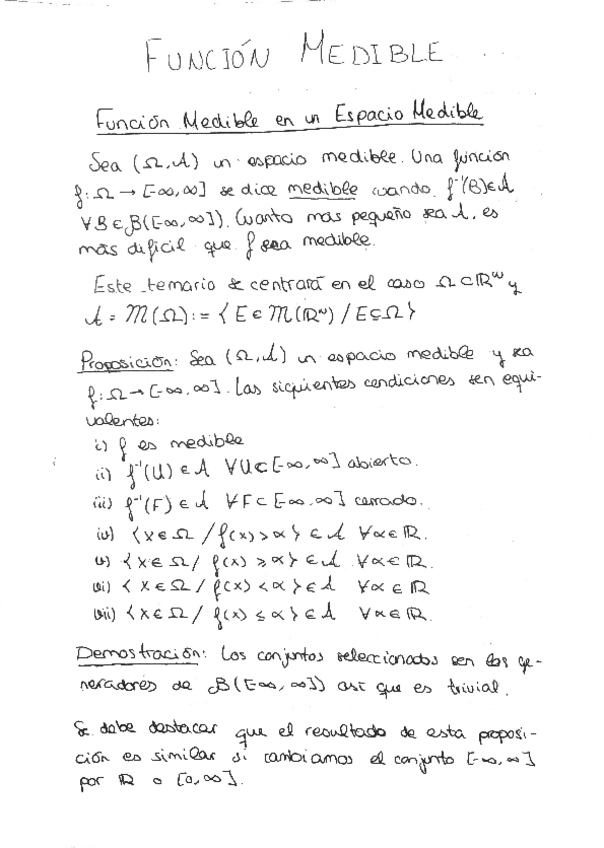 FUNCIÓN MEDIBLE
Función Medible en un Espacio Medible
Sea (Ω, A) un espacio medible. Una función
f: Ω → [-∞,∞] se dice medible cuando f⁻¹(B)∈A
∀B∈B([-∞,∞]). Cuanto más pequeño sea A, es
más dificil que f sea medible.
Este temario se centrará en el caso Ω⊂ℝᴺ y
A = M(Ω) := { E∈M(ℝᴺ) / E⊆Ω }
Proposición: Sea (Ω, A) un espacio medible y sea
f: Ω → [-∞,∞]. Las siguientes condiciones son equi-
valentes:
i) f es medible
ii) f⁻¹(U) ∈ A ∀U⊂[-∞,∞] abierto.
iii) f⁻¹(F) ∈ A ∀F⊂[-∞,∞] cerrado.
iv) { x∈Ω / f(x) > α } ∈ A ∀α∈ℝ.
v) { x∈Ω / f(x) ≥ α } ∈ A ∀α∈ℝ.
vi) { x∈Ω / f(x) < α } ∈ A ∀α∈ℝ
vii) { x∈Ω / f(x) ≤ α } ∈ A ∀α∈ℝ.
Demostración: Los conjuntos seleccionados son los ge-
neradores de B([-∞,∞]) así que es trivial.
Se debe destacar que el resultado de esta proposi-
ción es similar si cambiamos el conjunto [-∞,∞]
por ℝ o [0,∞].